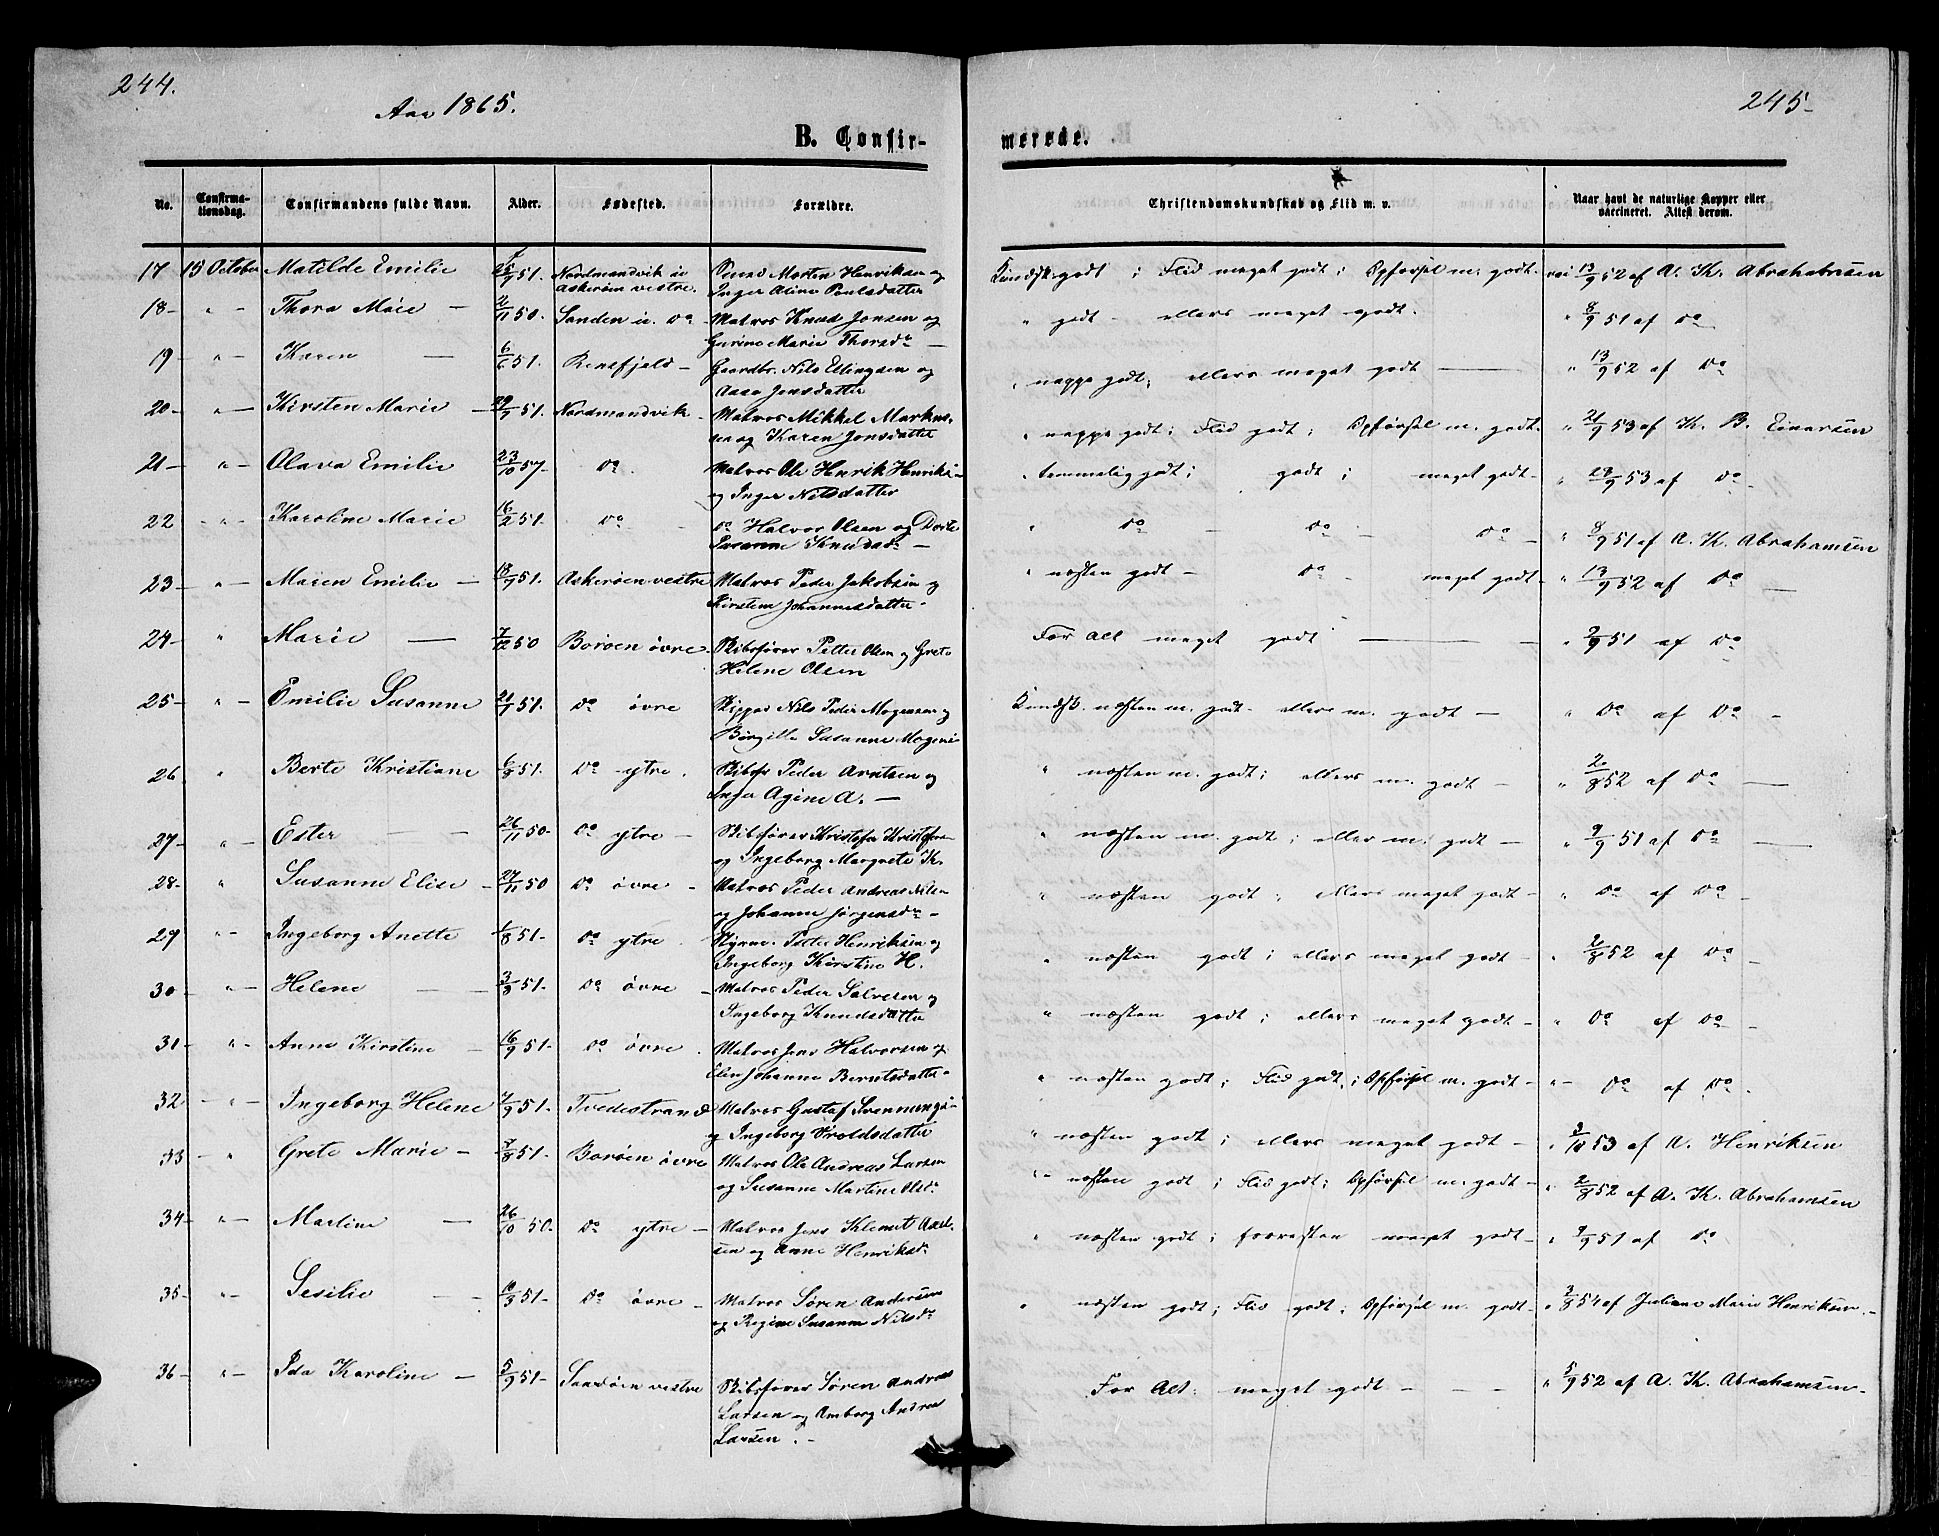 244.
Aar 1865.
B. Confir-
No.
Confirma-
tionsdag.
Confirmandens fulde Navn.
Alder.
Fødested.
Forældre.
17 15 October Matilde Emilie 25/9 51. Nordmandvik iu Askerøen vestre. Morten Henriksen og
Inger Aline Poulsdatter
18 - " - Thora Maie - 2/11 50. Sanden iu. Do - Matros Knud Jonsen og
Gurine Marie Thorsdr -
19 " - Karen - 6/6 51. Rensfjeld - Gaardbr. Nils Ellingsen og
Aase Jensdatter
20 - " - Kirsten Marie - 29/9 51. Nordmandvik - Matros Mikkel Markus-
sen og Karen Jonsdatter
21 - " - Olava Emilie 23/10 57 - Do. Matros Ole Henrik Henriksen
og Inger Nilsdatter
22 - " - Karoline Marie 16/2 51. Do - Do Halvor Olsen og Dorte
Susanne Knudsdr -
23 - " - Maren Emilie - 18/9 51. Askerøen vestre Matros Peder Jakobsen og
Kirstine Johannesdatter.
24 - " Marie - 7/12 50 Borøen øvre - Skibsfører Petter Olsen og Grete
Helene Olsen
25 - " - Emilie Susanne 21/7 51. Do øvre Skipper Nils Peder Mogensen og
Birgitte Susanne Mogens
26 " Berte Kristiane 6/8 51. Do - ytre. Skibsfr Peder Arntsen og
Inga Agine A. -
27 - " - Ester - - 26/11 50 - Do ytre - Skibsfører Kristofer Kristofers
og Ingeborg Margrete K.
28 - " Susanne Elise - 27/11 50 Do øvre - Matros Peder Andreas Nilsen
og Johanne Jørgensdr -
29 " - Ingeborg Anette 1/8 51 - Do ytre. Styrm. Peder Henriksen og
Ingeborg Kirstine H.
30 - " - Helene - - 3/8 51 - Do øvre - Matros Peder Salvesen og
Ingeborg Knudsdatter
31 - " - Anne Kirstine - 16/9 51 - Do øvre. Matros Jens Halvorsen og
Elen Johanne Berntsdatter
32 - " - Ingeborg Helene 7/9 51. Tvedestrand Matros Gustaf Svenningsen
og Ingeborg Troldsdatter
33 - " Grete Marie - 7/8 51 - Borøen øvre Matros Ole Andreas Larsen
og Susanne Martine Olsdr
34 - " - Martine - 26/10 50 - Do ytre - Matros Jens Klemet Axel-
sen og Anne Henriksdr
35 - " - Sesilie - - 10/3 51 - Do øvre - Matros Søren Andersen
og Regine Susanne Nilsdr
36 - " - Ida Karoline - 5/9 51 - Sandøen vestre Skibsfører Søren Andreas
Larsen og Amborg Andrea
Larsen. -
245 -
merede.
Christendomskundskab og Flid m. v.
Naar havt de naturlige Kopper eller
vaccineret. Attest derom.
Kundsk. godt; Flid meget godt; Opførsel m. godt - vac 13/9 52 af A. K. Abrahamsen
" godt - ellers meget godt. " 8/9 51 af Do
" neppe godt; ellers meget godt - " 13/9 52 af Do
" neppe godt; Flid godt; Opførsel m. godt - " 21/9 53 af K. B. Einarsen
" temmelig godt; godt; meget godt - " 28/9 53 af Do -
" Do - Do - Do - " 8/9 51 af A. K. Abrahamsen
" næsten godt - Do - meget godt - " 13/9 52 af Do -
For alt meget godt - - " 9/9 51 af Do
Kundsk. næsten m. godt - ellers m. godt - " Do af Do -
" næsten m. godt; ellers m. godt - " 2/8 52 af Do -
" næsten m. godt; ellers m. godt - " 9/9 51 af Do -
" næsten godt; ellers meget godt - " Do af Do -
" næsten godt; ellers meget godt - " 2/8 52 af Do -
" næsten godt; ellers meget godt - " Do af Do -
" næsten godt; Flid godt; Opførsel m. godt - " - Do af Do -
" næsten godt; ellers meget godt - " 3/10 53 af A. Henriksen
" - næsten godt; Flid godt; Opførsel m. godt - " 2/8 52 af A. K. Abrahamsen
" næsten godt; forresten meget godt - " 9/9 51 af Do
" næsten godt; Flid godt; Opførsel m. godt - " 2/8 54 af Juliane Marie Henriksen. -
For Alt: meget godt - - - " 5/9 52 af A. K. Abrahamsen -